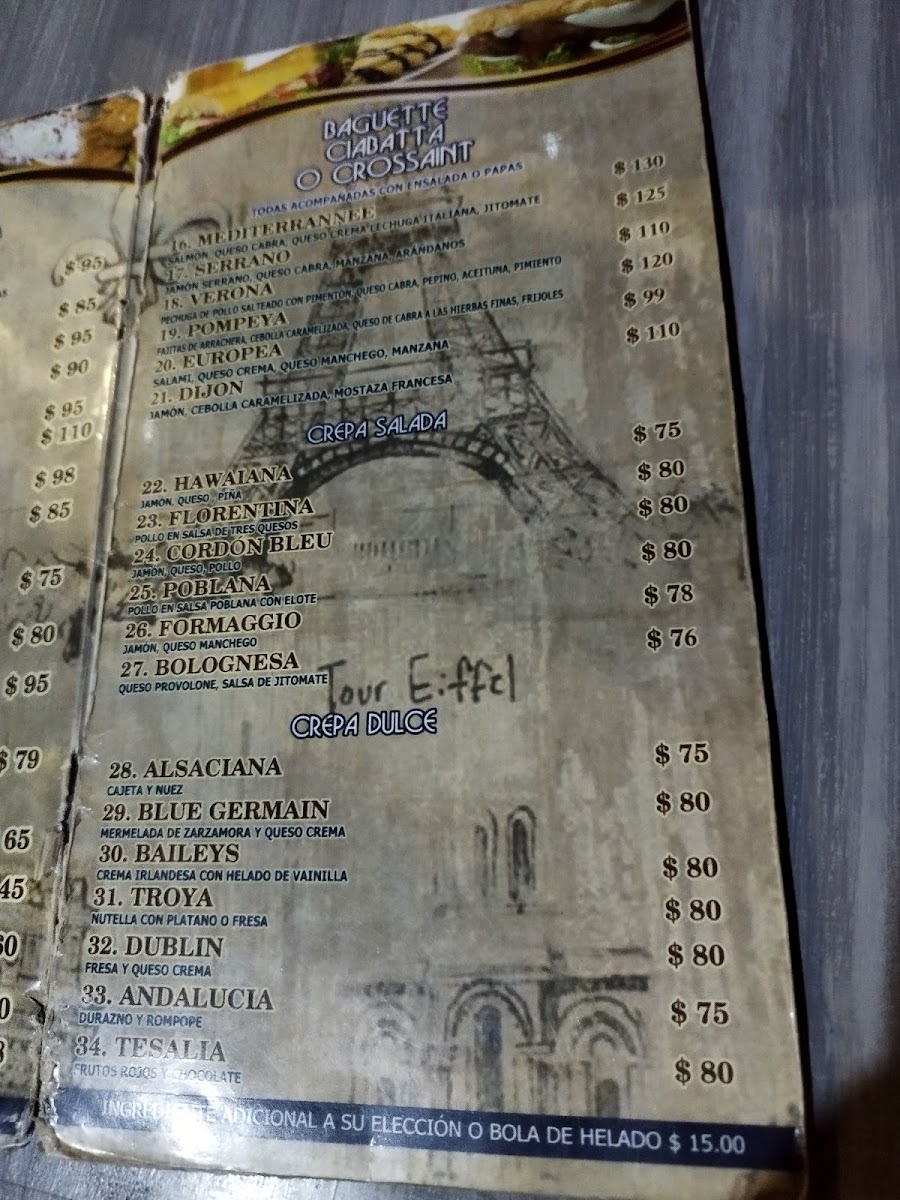 $ 95
$ 85
$ 95
$ 90
$ 95
$ 110
$ 98
$ 85
$ 75
$ 80
$ 95
$ 79
65
45
BAGUETTE
CIABATTA
O CROSSAINT
TODAS ACOMPAÑADAS CON ENSALADA O PAPAS
16. MEDITERRANNEE $ 130
SALMÓN, QUESO CABRA, QUESO CREMA LECHUGA ITALIANA, JITOMATE
17. SERRANO $ 125
JAMÓN SERRANO, QUESO CABRA, MANZANA, ARÁNDANOS
18. VERONA $ 110
PECHUGA DE POLLO SALTEADO CON PIMENTÓN, QUESO CABRA, PEPINO, ACEITUNA, PIMIENTO
19. POMPEYA $ 120
FAJITAS DE ARRACHERA, CEBOLLA CARAMELIZADA, QUESO DE CABRA A LAS HIERBAS FINAS, FRIJOLES
20. EUROPEA $ 99
SALAMI, QUESO CREMA, QUESO MANCHEGO, MANZANA
21. DIJON $ 110
JAMÓN, CEBOLLA CARAMELIZADA, MOSTAZA FRANCESA
CREPA SALADA
22. HAWAIANA $ 75
JAMÓN, QUESO, PIÑA
23. FLORENTINA $ 80
POLLO EN SALSA DE TRES QUESOS
24. CORDON BLEU $ 80
JAMÓN, QUESO, POLLO
25. POBLANA $ 80
POLLO EN SALSA POBLANA CON ELOTE
26. FORMAGGIO $ 78
JAMÓN, QUESO MANCHEGO
27. BOLOGNESA $ 76
QUESO PROVOLONE, SALSA DE JITOMATE
Tour Eiffel
CREPA DULCE
28. ALSACIANA $ 75
CAJETA Y NUEZ
29. BLUE GERMAIN $ 80
MERMELADA DE ZARZAMORA Y QUESO CREMA
30. BAILEYS $ 80
CREMA IRLANDESA CON HELADO DE VAINILLA
31. TROYA $ 80
NUTELLA CON PLATANO O FRESA
32. DUBLIN $ 80
FRESA Y QUESO CREMA
33. ANDALUCIA $ 75
DURAZNO Y ROMPOPE
34. TESALIA $ 80
FRUTOS ROJOS Y CHOCOLATE
INGREDIENTE ADICIONAL A SU ELECCIÓN O BOLA DE HELADO $ 15.00